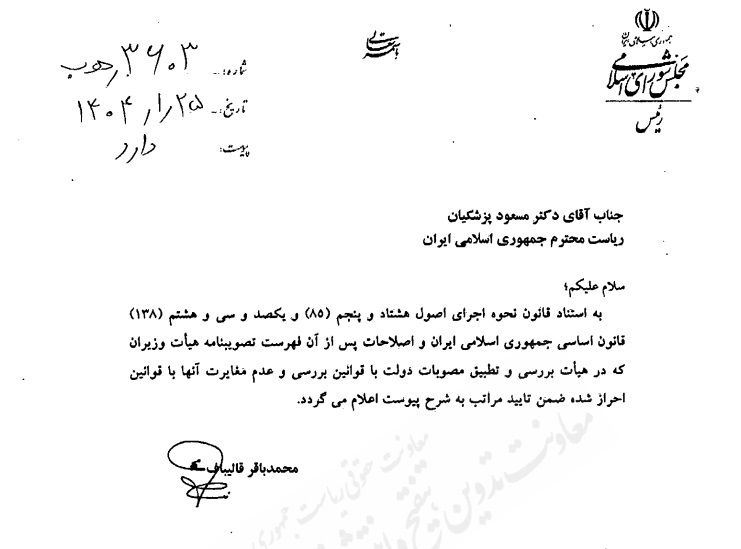 جمهوری اسلامی ایران
مجلس شورای اسلامی
رئیس
شماره:
تاریخ: ۱۴۰۴
پیوست: دارد
جناب آقای دکتر مسعود پزشکیان
ریاست محترم جمهوری اسلامی ایران
سلام علیکم؛
به استناد قانون نحوه اجرای اصول هشتاد و پنجم (۸۵) و یکصد و سی و هشتم (۱۳۸)
قانون اساسی جمهوری اسلامی ایران و اصلاحات پس از آن فهرست تصویبنامه هیأت وزیران
که در هیأت بررسی و تطبیق مصوبات دولت با قوانین بررسی و عدم مغایرت آنها با قوانین
احراز شده ضمن تایید مراتب به شرح پیوست اعلام می گردد.
محمدباقر قالیباف
معاونت حقوقی ریاست جمهوری
معاونت تدوین تنقیح